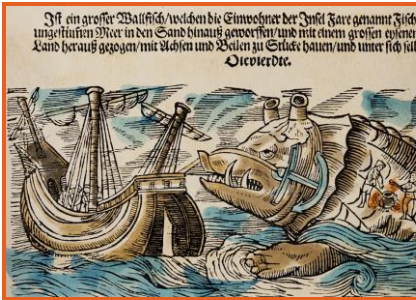 Ist ein grosser Wallfisch/welchen die Einwohner der Insel Fare genannt Fisch
ungestümen Meer in den Sand hinauß geworffen/und mit einem grossen eysene
Land herauß gezogen/mit Achsen und Beilen zu Stücke hauen/und unter sich
Die vierdte.